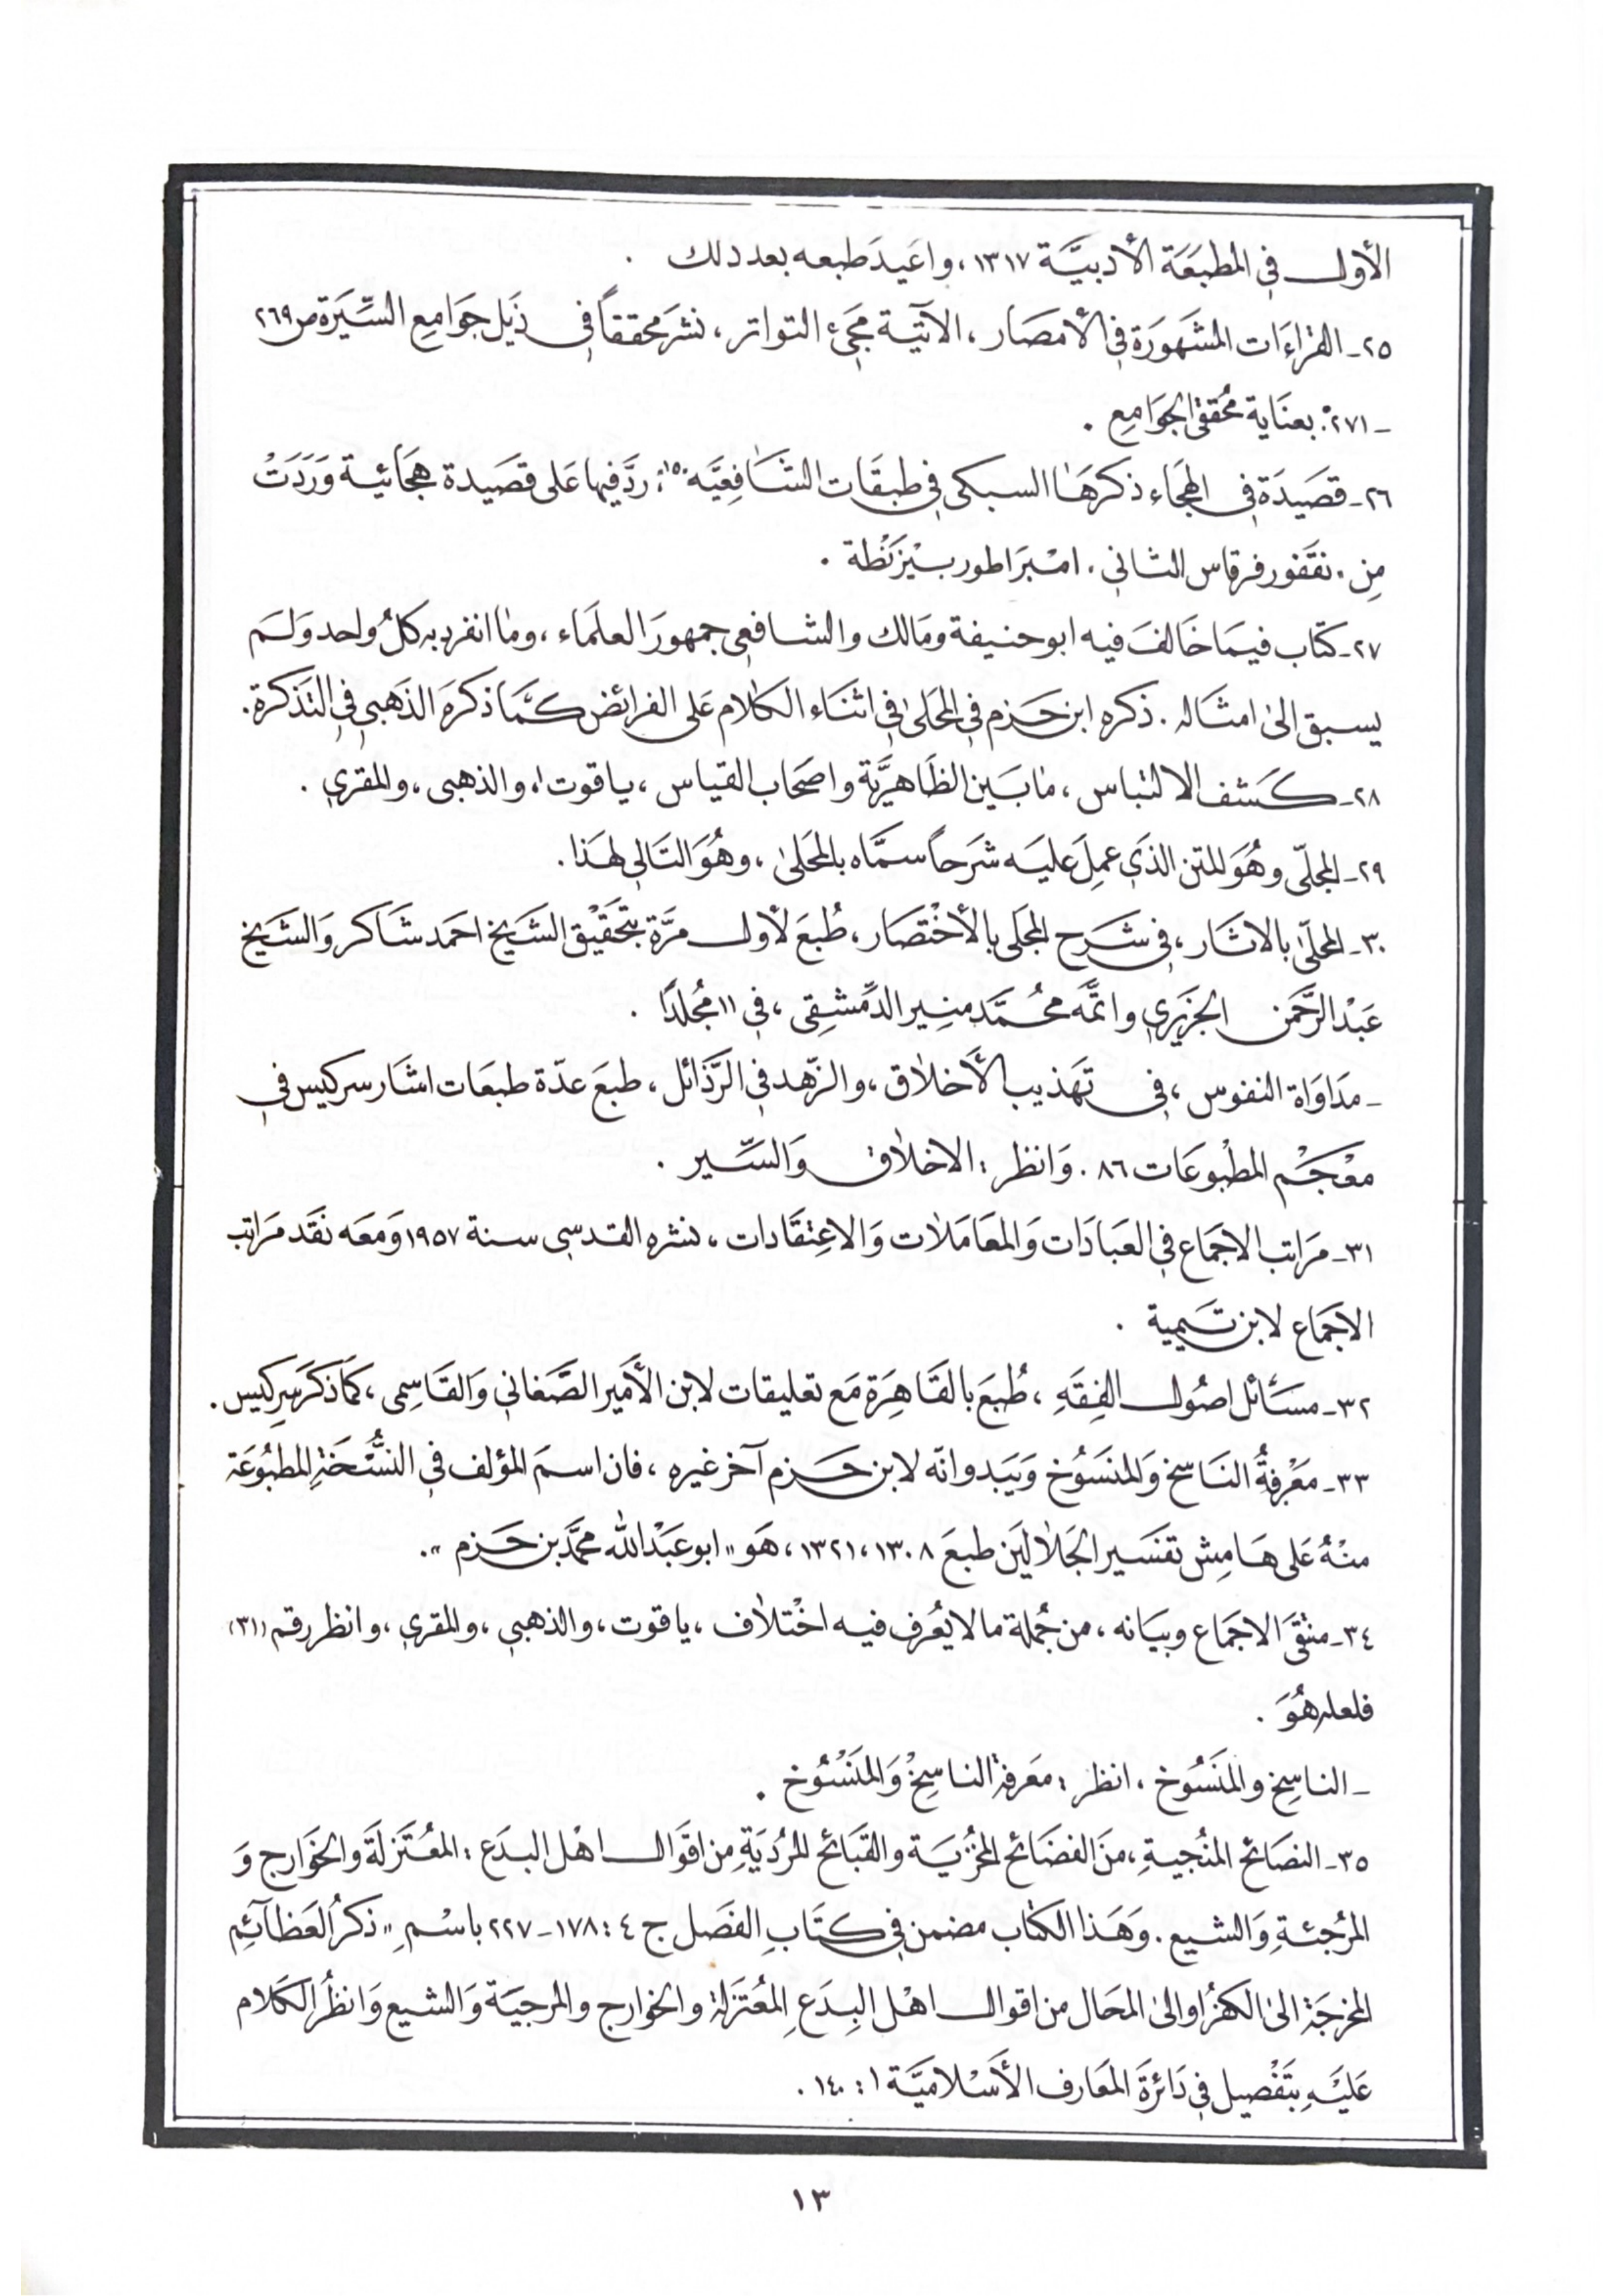 الأول في المطبَعَة الأدبيَّة ١٣١٧، واعَيدَ طبعه بعد ذلك .
٢٥ـ القراءَات المشَهَورَة في الأمصَار، الآتيَة مجَيء التواتر، نشرَ محققاً في ذَيل جَوَامِع السَّيَرة ص ٢٦٩
ـ ٢٧١: بعنَاية مُحققي الجَوَامِع .
٢٦ـ قصَيدَة في الهجَاء ذكرهَا السبكى في طبقَات الشَافِعيَّه ١٥: ردَّ فيها عَلى قصَيدة هجَائية وَرَدَتْ
مِن . نقفور فرقاس الثاني . امبَراطور بيْزَنْطة .
٢٧ـ كتَاب فيمَا خَالفَ فيه ابو حنيفة ومَالك والشافعي جمهورَ العلَماء ، وما انفرد به كلُ واحد وَلم
يسبق الىٰ امثَاله . ذكره ابن حَزم في المحَلىٰ في اثنَاء الكَلام عَلى الفرائض كمَّا ذكرَه الذَهبي في التَذكرة .
٢٨ـ كَشف الالتباس ، مٰا بَين الظَاهِريَّة واصحَاب القيَاس ، ياقوت ، والذهبى ، والمقري .
٢٩ـ المجلّى وهُوَ المتن الذَي عمِلَ عليَه شَرَحاً سمَّاه بالمحَلىٰ ، وهُوَ التَالي لهَذا .
٣٠ـ المحلّىٰ بالاثَار ، في شَرَح المجَلى بالأخْتصَار ، طُبعَ لأول مرَّة بتحَقيْق الشَيخ احمَد شَاكر وَالشَيخ
عَبْد الرَّحَمن الجَزَيري واتمَّه محُمَّد منير الدَّمشِقى ، في ١١ مُجلدًا .
ـ مدَاوَاة النفوس ، في تهَذيب الأَخلاق ، والزّهد في الرَّذَائل ، طبعَ عدّة طبعَات اشَار سركيس في
معْجَم المطبْوعَات ٨٦ . وَانظر : الاخلاق وَالسّير .
٣١ـ مرَاتب الاجمَاع في العبَادَات وَالمعَامَلات وَالاعِتقَادات ، نشره القدسى سنة ١٩٥٧ وَمعَه نقَد مرَاتب
الاجمَاع لابن تَيمية .
٣٢ـ مسَائل اصُول الفِقَهِ ، طُبعَ بالقَاهِرَة مَع تعليقات لابن الأَمير الصَّغاني وَالقَاسِمى ، كمَا ذكرَ سِركيس .
٣٣ـ معْرفةُ النَاسخ وَالمنسَوُخ وَيَبدو انّه لابن حَزم آخر غيره ، فان اسمَ المؤلف في النسُّخَةِ المطبُوعَة
منْهُ عَلى هَامِش تفسَير الجَلالَين طبعَ ١٣٠٨ ، ١٣٢١ ، هَو " ابو عَبْد الله محمَّد بن حَزم " .
٣٤ـ منتقَىَ الاجمَاع وبيَانه ، من جُملة ما لا يعُرف فيه اخْتلاف ، ياقوت ، والذهبي ، والمقري ، وانظر رقم (٣١)
فلعله هُوَ .
ـ الناسِخ والمنَسُوخ ، انظر : معَرفة الناسِخْ وَالمنَسْوُخ .
٣٥ـ النصَائح المنُجيةِ ، منَ الفضَائح المخُزيَة والقبَائح المرُديَةِ من اقوَال اهْل البدَع : المعُتَزلَة والخوَارج وَ
المرُجئةِ وَالشيع . وَهَذا الكتاب مضمن في كتَاب الفصَل ج ٤ : ١٧٨ ـ ٢٢٧ باسْمِ " ذكرُ العَظآئِم
المخرجَة الىٰ الكفر او الىٰ المحَال من اقوال اهْل البِدَعِ المعُتَزلة والخوارج والمرجيَة وَالشيع وَانظُر الكَلام
عَليْهِ بتَفْصيل في دَائرَة المعَارف الأَسْلاميَّة ١ : ١٤٠ .
١٣